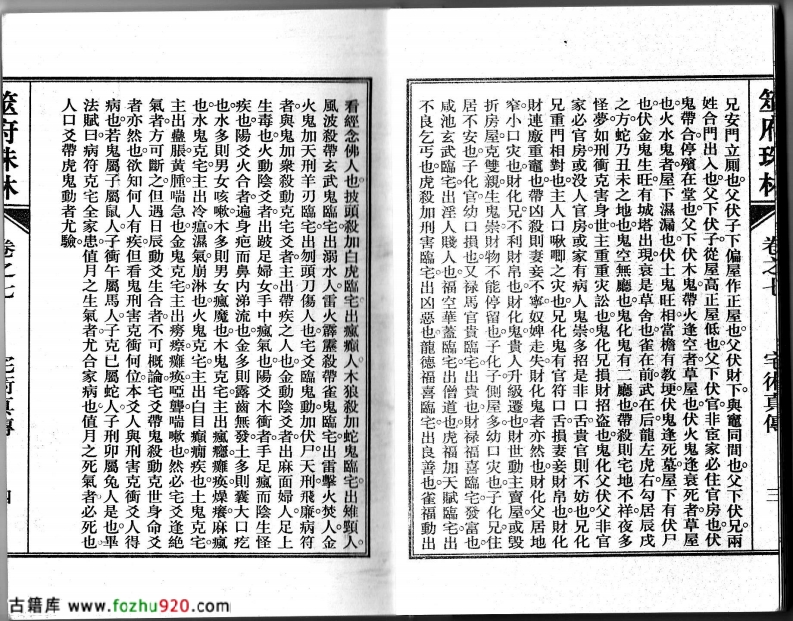 筮府珠林
卷之七
宅術真傳
三
兄安門立厠也父伏子下偏屋作正屋也父伏財下與竈同間也父下伏兄兩
姓合門出入也父下伏子從屋高正屋低也父下伏官非宦家必住官房也伏
鬼帶合停殯在堂也父下伏木鬼帶火逢空者草屋也伏火鬼逢衰死者草屋
也火水鬼者屋下濕漏也伏土鬼旺相當檐有教堧伏鬼逢死墓屋下有伏尸
也伏金鬼生旺有城塔出現衰是草舍也雀在前武在后龍左虎右勾居辰戌
之方蛇乃丑未之地也鬼空無廳也鬼化鬼有二廳也帶殺則宅地不祥夜多
怪夢如刑衝克害身世主重重灾訟也鬼化兄損財招盗也鬼化父伏父非官
家必官房或没人官房或家有病人鬼祟多招是非口舌貴官則不妨也兄化
兄重門相對也主人口啾唧之灾也兄化鬼有官符口舌損妻妾財帛也財化
財連廒重竈也帶凶殺則妻妾不寧奴婢走失財化鬼者亦然也財化父居地
窄小口灾也財化兄不利財帛也財化鬼貴人升級遷也財世動主賣屋或毀
折房屋克雙親生鬼祟財物不能停留也子化子側屋多幼口灾也子化兄住
居不安也子化官幼口損也又禄馬官貴臨宅出貴也財禄福喜臨宅發富也
咸池玄武臨宅出淫人賤人也福空華蓋臨宅出僧道也虎福加天賦臨宅出
不良乞丐也虎殺加刑害臨宅出凶惡也龍德福喜臨宅出良善也雀福動出
看經念佛人也披頭殺加白虎臨宅出瘋癲人木狼殺加蛇鬼臨宅出雉頸人
風波殺帶玄武鬼臨宅出溺水人雷火霹靂殺帶雀鬼臨宅出雷擊火焚人金
火鬼加天刑羊刃臨宅出刎頭刀傷人也宅爻臨鬼動加伏尸天刑飛廉病符
者與鬼加衆殺動克宅爻者主出帶疾之人也金動陰爻者出麻面婦人足上
生毒也火動陰爻者出跛足婦女手中瘋氣也陽爻木衝者手足瘋而陰生怪
疾也陽爻火合者遍身疤而鼻内涕流也金多則露齒無發土多則囊大口疙
也水多則男女咳嗽木多則男女瘋魔也木鬼克宅主出瘋癮癱痪燥癢麻瘋
也水鬼克宅主出冷瘟濕氣崩淋也火鬼克宅主出白目癲癇疾也土鬼克宅
主出蠱脹黄腫喘急也金鬼克宅主出癆瘵癱痪啞聾喘嗽也然必宅爻逢絶
氣者方可斷之但遇日辰動爻生合者不可概論宅爻帶鬼殺動克世身命爻
者亦然也欲知何人有疾但看鬼刑害克衝何位本爻人與刑害克衝爻人得
病也若鬼屬子屬鼠人子衝午屬馬人子克巳屬蛇人子刑卯屬兔人是也畢
法賦曰病符克宅全家患值月之生氣者尤合家病也值月之死氣者必死也
人口爻帶虎鬼動者尤驗
筮府珠林
卷之七
宅術真傳
四
古籍库 www.fozhu920.com